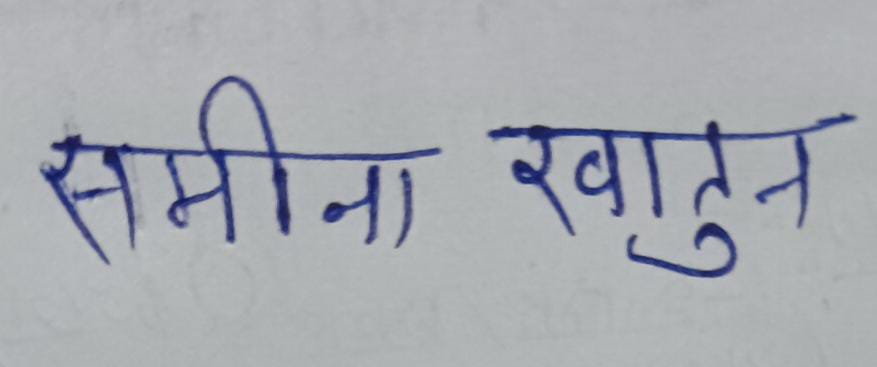 समीना खातुन